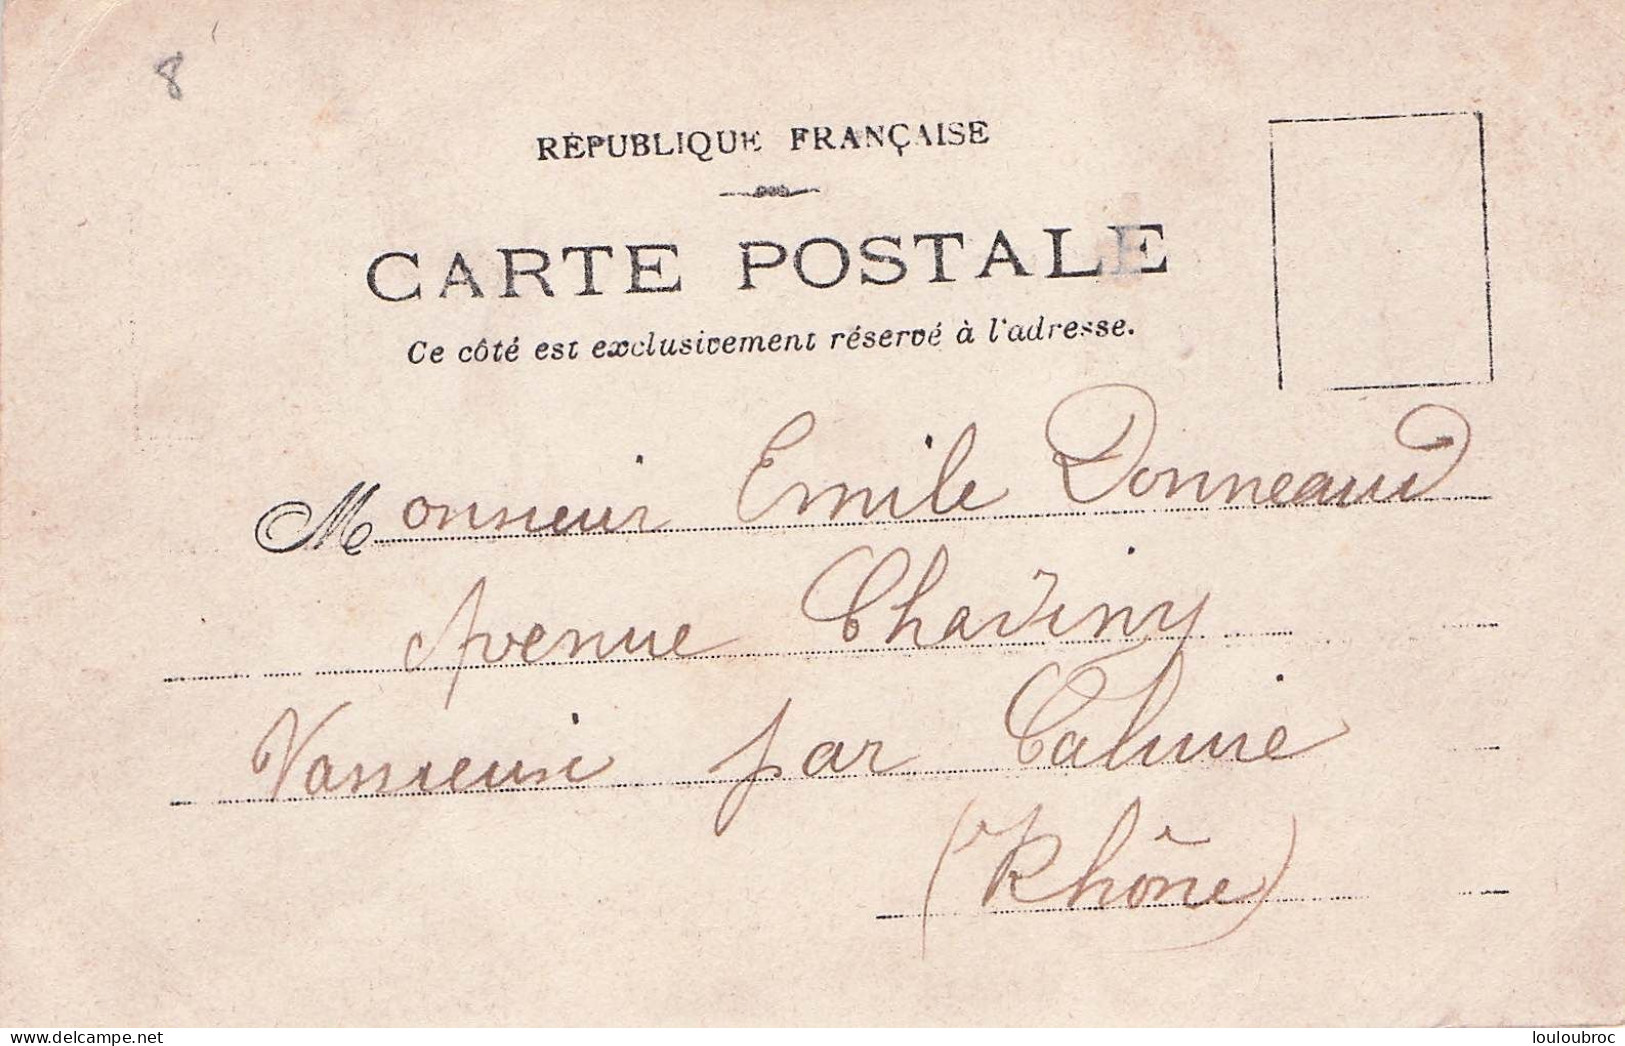 8
RÉPUBLIQUE FRANÇAISE
CARTE POSTALE
Ce côté est exclusivement réservé à l'adresse.
Monsieur Emile Donneaud
Avenue Thaviny
Vassieux par Caluire
(Rhône)
delcampe.net
louloubroc